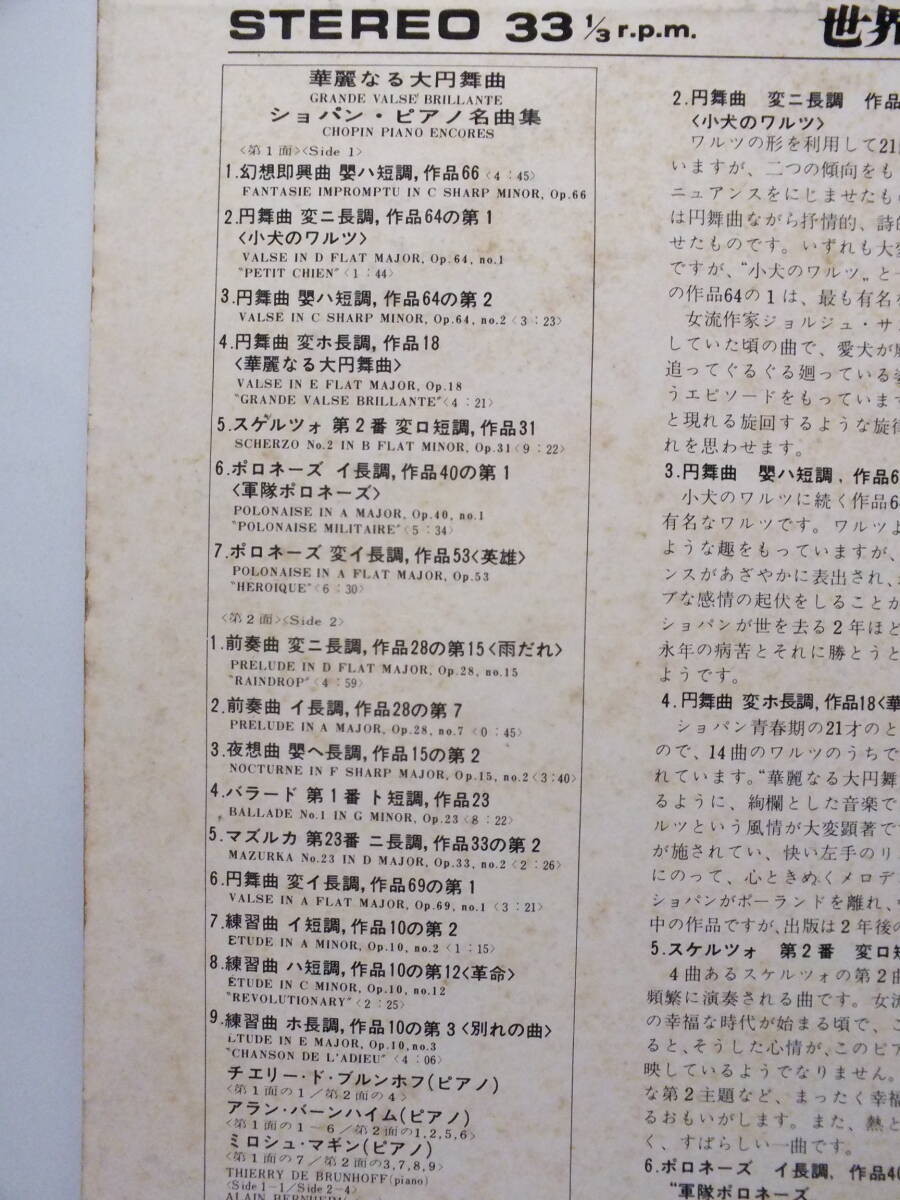 STEREO 33 1/3 r.p.m.
世界
華麗なる大円舞曲
GRANDE VALSE BRILLANTE
ショパン・ピアノ名曲集
CHOPIN PIANO ENCORES
〈第1面〉〈Side 1〉
1.幻想即興曲 嬰ハ短調,作品66〈4:45〉
FANTASIE IMPROMPTU IN C SHARP MINOR, Op.66
2.円舞曲 変ニ長調,作品64の第1
〈小犬のワルツ〉
VALSE IN D FLAT MAJOR, Op.64, no.1
"PETIT CHIEN"〈1:44〉
3.円舞曲 嬰ハ短調,作品64の第2
VALSE IN C SHARP MINOR, Op.64, no.2〈3:23〉
4.円舞曲 変ホ長調,作品18
〈華麗なる大円舞曲〉
VALSE IN E FLAT MAJOR, Op.18
"GRANDE VALSE BRILLANTE"〈4:21〉
5.スケルツォ 第2番 変ロ短調,作品31
SCHERZO No.2 IN B FLAT MINOR, Op.31〈9:22〉
6.ポロネーズ イ長調,作品40の第1
〈軍隊ポロネーズ〉
POLONAISE IN A MAJOR, Op.40, no.1
"POLONAISE MILITAIRE"〈5:34〉
7.ポロネーズ 変イ長調,作品53〈英雄〉
POLONAISE IN A FLAT MAJOR, Op.53
"HEROIQUE"〈6:30〉
〈第2面〉〈Side 2〉
1.前奏曲 変ニ長調,作品28の第15〈雨だれ〉
PRELUDE IN D FLAT MAJOR, Op.28, no.15
"RAINDROP"〈4:59〉
2.前奏曲 イ長調,作品28の第7
PRELUDE IN A MAJOR, Op.28, no.7〈0:45〉
3.夜想曲 嬰ヘ長調,作品15の第2
NOCTURNE IN F SHARP MAJOR, Op.15, no.2〈3:40〉
4.バラード 第1番 ト短調,作品23
BALLADE No.1 IN G MINOR, Op.23〈8:22〉
5.マズルカ 第23番 ニ長調,作品33の第2
MAZURKA No.23 IN D MAJOR, Op.33, no.2〈2:26〉
6.円舞曲 変イ長調,作品69の第1
VALSE IN A FLAT MAJOR, Op.69, no.1〈3:21〉
7.練習曲 イ短調,作品10の第2
ETUDE IN A MINOR, Op.10, no.2〈1:15〉
8.練習曲 ハ短調,作品10の第12〈革命〉
ETUDE IN C MINOR, Op.10, no.12
"REVOLUTIONARY"〈2:25〉
9.練習曲 ホ長調,作品10の第3〈別れの曲〉
ETUDE IN E MAJOR, Op.10, no.3
"CHANSON DE L'ADIEU"〈4:06〉
チエリー・ド・ブルンホフ(ピアノ)
〈第1面の1/第2面の4〉
アラン・バーンハイム(ピアノ)
〈第1面の1-6/第2面の1,2,5,6〉
ミロシュ・マギン(ピアノ)
〈第1面の7/第2面の3,7,8,9〉
THIERRY DE BRUNHOFF(piano)
〈Side 1-1/Side 2-4〉
ALAIN BERNHEIM
2.円舞曲 変ニ長調 作品
〈小犬のワルツ〉
ワルツの形を利用して21
いますが、二つの傾向をも
ニュアンスをにじませたも
は円舞曲ながら抒情的、詩
せたものです。いずれも大変
ですが、"小犬のワルツ„と
の作品64の1は、最も有名な
女流作家ジョルジュ・サ
していた頃の曲で、愛犬が
追ってぐるぐる廻っている
うエピソードをもっています
と現れる旋回するような旋律
れを思わせます。
3.円舞曲 嬰ハ短調,作品6
小犬のワルツに続く作品6
有名なワルツです。ワルツよ
ような趣をもっていますが、
ンスがあざやかに表出され、
ブな感情の起伏をしることが
ショパンが世を去る2年ほど
永年の病苦とそれに勝とうと
ようです。
4.円舞曲 変ホ長調,作品18〈華
ショパン青春期の21才のと
ので、14曲のワルツのうちで
れています。"華麗なる大円舞
るように、絢欄とした音楽で
ルツという風情が大変顕著で
が施されてい、快い左手のリ
にのって、心ときめくメロデ
ショパンがポーランドを離れ、
中の作品ですが、出版は2年後の
5.スケルツォ 第2番 変ロ短
4曲あるスケルツォの第2曲
頻繁に演奏される曲です。女流
の幸福な時代が始まる頃で、こ
ると、そうした心情が、このピア
映しているようでなりません。
な第2主題など、まったく幸福
るおもいがします。また、熱と
く、すばらしい一曲です。
6.ポロネーズ イ長調,作品40
"軍隊ポロネーズ